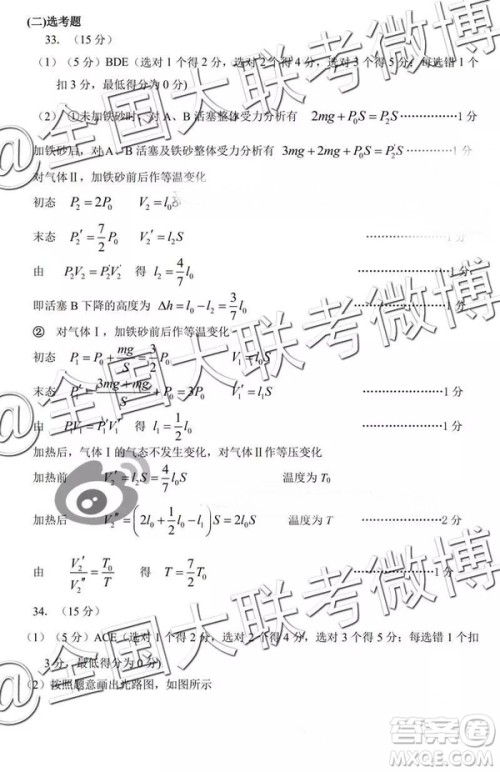 (二)选考题
33. （15 分）
（1）（5 分）BDE（选对 1 个得 2 分，选对 2 个得 4 分，选对 3 个得 5 分；每选错 1 个
扣 3 分，最低得分为 0 分）
（2） ①未加铁砂时，对 A、B 活塞整体受力分析有 2mg + P₀S = P₂S ⋯⋯⋯⋯⋯1 分
加铁砂后，对 A、B 活塞及铁砂整体受力分析有 3mg + 2mg + P₀S = P₂′S ⋯⋯⋯⋯⋯1 分
对气体Ⅱ，加铁砂前后作等温变化
初态 P₂ = 2P₀ V₂ = l₀S
末态 P₂′ = 7/2 P₀ V₂′ = l₂S ⋯⋯⋯⋯⋯1 分
由 P₂V₂ = P₂′V₂′ 得 l₂ = 4/7 l₀ ⋯⋯⋯⋯⋯1 分
即活塞 B 下降的高度为 Δh = l₀ − l₂ = 3/7 l₀ ⋯⋯⋯⋯⋯1 分
② 对气体Ⅰ，加铁砂前后作等温变化
初态 P₁ = P₀ + mg/S = 3/2 P₀ V₁ = l₀S
末态 P₁′ = (3mg + mg)/S + P₀ = 3P₀ V₁′ = l₁S ⋯⋯⋯⋯⋯1 分
由 P₁V₁ = P₁′V₁′ 得 l₁ = 1/2 l₀ ⋯⋯⋯⋯⋯1 分
加热后，气体Ⅰ的气态不发生变化，对气体Ⅱ作等压变化
加热前 V₂′ = l₂S = 4/7 l₀S 温度为 T₀
加热后 V₂″ = (2l₀ + 1/2 l₀ − l₁)S = 2l₀S 温度为 T ⋯⋯⋯⋯⋯2 分
由 V₂′/V₂″ = T₀/T 得 T = 7/2 T₀ ⋯⋯⋯⋯⋯1 分
34. （15 分）
（1）（5 分）ACE（选对 1 个得 2 分，选对 2 个得 4 分，选对 3 个得 5 分；每选错 1 个扣
3 分，最低得分为 0 分）
（2）按照题意画出光路图，如图所示
@全国大联考微博
@全国大联考微博
@全国大联考微博
答案圈
MXQE.COM